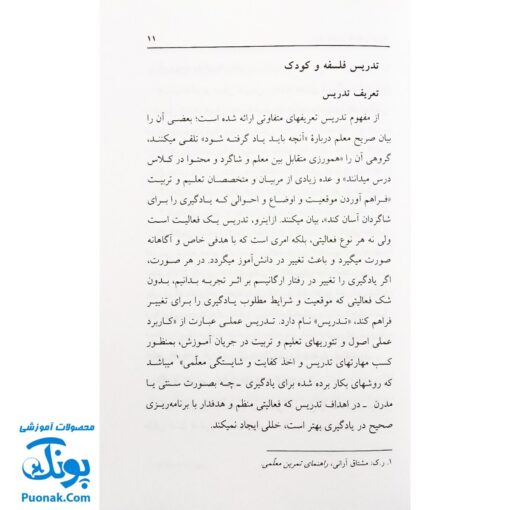 ۱۱
تدریس فلسفه و کودک
تعریف تدریس
از مفهوم تدریس تعریفهای متفاوتی ارائه شده است؛ بعضی آن را
بیان صریح معلم دربارهٔ «آنچه باید یاد گرفته شود» تلقی میکنند،
گروهی آن را «همورزی متقابل بین معلم و شاگرد و محتوا در کلاس
درس میدانند» و عده زیادی از مربیان و متخصصان تعلیم و تربیت
«فراهم آوردن موقعیت و اوضاع و احوالی که یادگیری را برای
شاگردان آسان کند»، بیان میکنند. ازاینرو، تدریس یک فعالیت است
ولی نه هر نوع فعالیتی، بلکه امری است که با هدفی خاص و آگاهانه
صورت میگیرد و باعث تغییر در دانش‌آموز میگردد. در هر صورت،
اگر یادگیری را تغییر در رفتار ارگانیسم بر اثر تجربه بدانیم، بدون
شک فعالیتی که موقعیت و شرایط مطلوب یادگیری را برای تغییر
فراهم کند، «تدریس» نام دارد. تدریس عملی عبارت از «کاربرد
عملی اصول و تئوریهای تعلیم و تربیت در جریان آموزش، بمنظور
کسب مهارتهای تدریس و اخذ کفایت و شایستگی معلّمی»۱ میباشد
که روشهای بکار برده شده برای یادگیری ـ چه بصورت سنتی یا
مدرن ـ در اهداف تدریس که فعالیتی منظم و هدفدار با برنامه‌ریزی
صحیح در یادگیری بهتر است، خللی ایجاد نمیکند.
۱. ر.ک: مشتاق آرانی، راهنمای تمرین معلّمی.
محصولات آموزشی
پونک
Puonak.Com